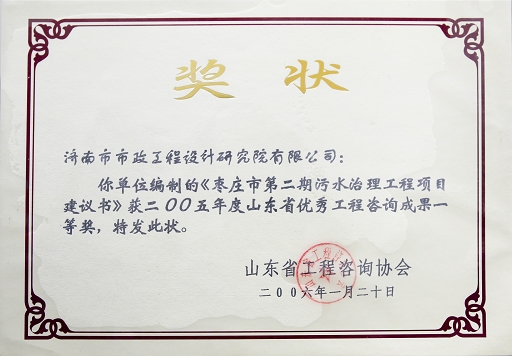 奖 状
济南市市政工程设计研究院有限公司：
你单位编制的《枣庄市第二期污水治理工程项目
建议书》获二00五年度山东省优秀工程咨询成果一
等奖，特发此状。
山东省工程咨询协会
二00六年一月二十日